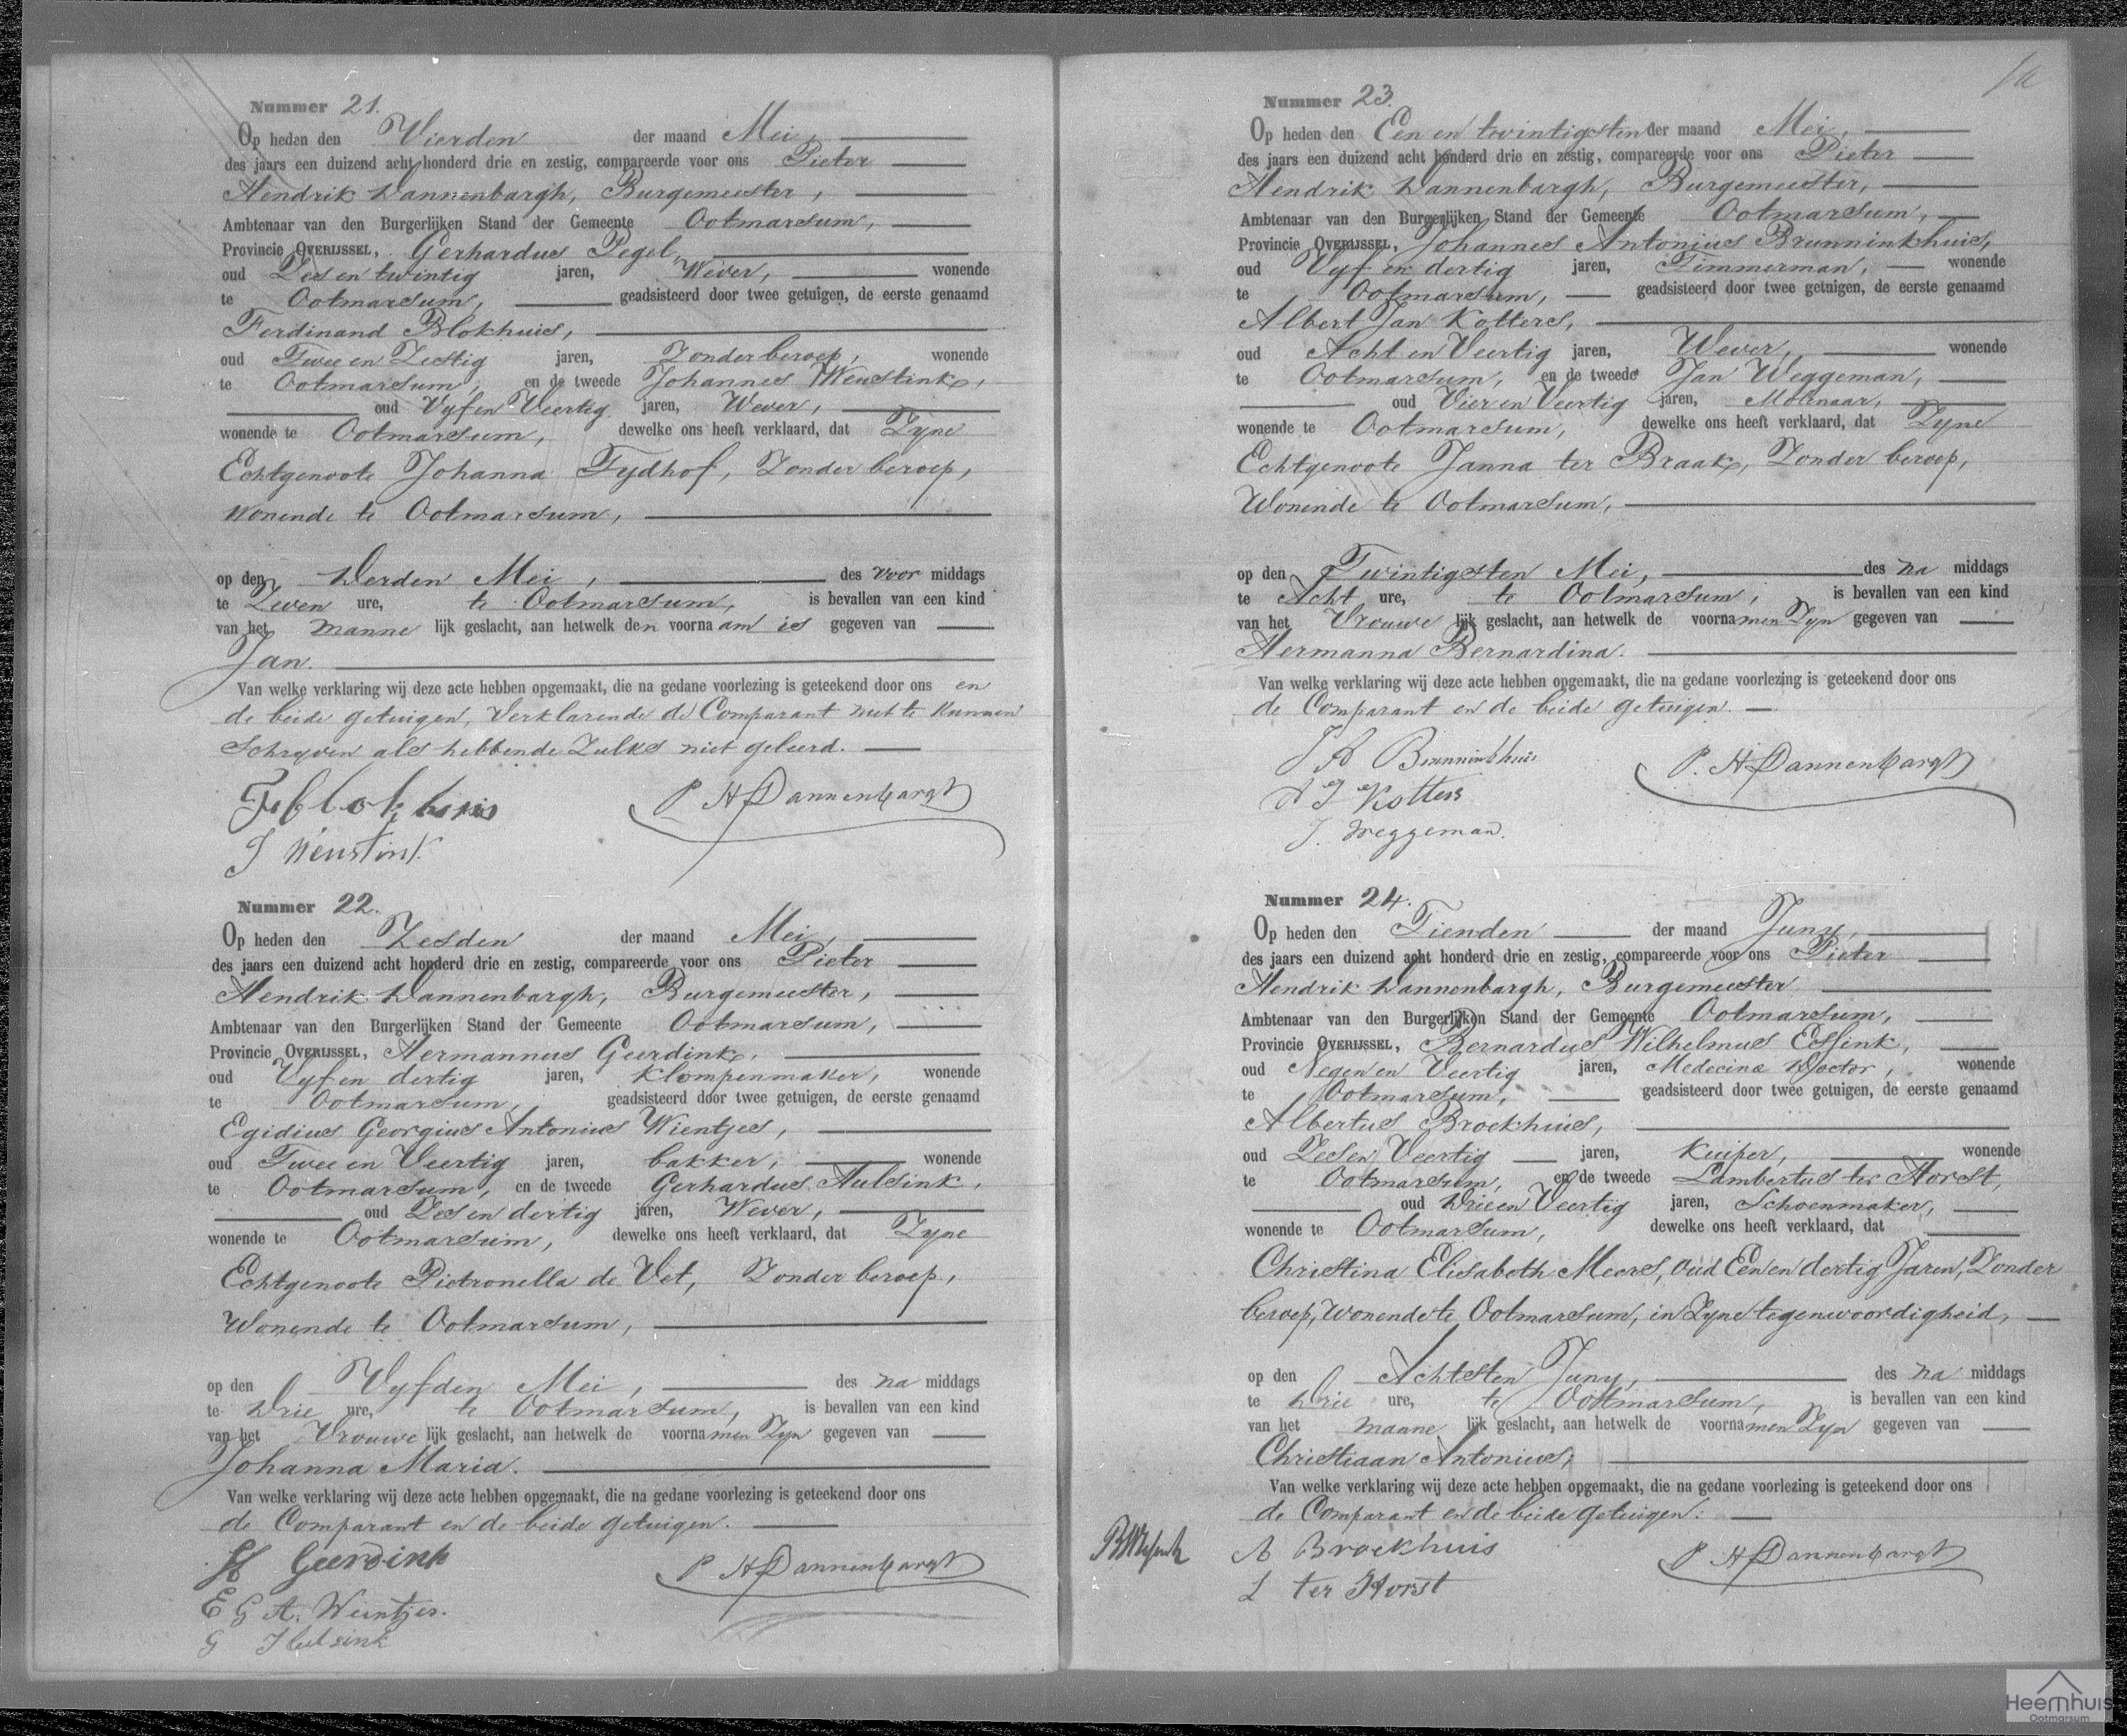 Nummer 21.
Op heden den Vierden der maand Mei,
des jaars een duizend acht honderd drie en zestig, compareerde voor ons Pieter
Hendrik Dannenbargh, Burgemeester,
Ambtenaar van den Burgerlijken Stand der Gemeente Ootmarsum,
Provincie OVERIJSSEL, Gerhardus Pegel,
oud Zes en twintig jaren, Wever, wonende
te Ootmarsum, geadsisteerd door twee getuigen, de eerste genaamd
Ferdinand Blokhuis,
oud Twee en Zestig jaren, Zonder beroep, wonende
te Ootmarsum, en de tweede Johannes Weustink,
oud Vyf en Veertig jaren, Wever,
wonende te Ootmarsum, dewelke ons heeft verklaard, dat Zyne
Echtgenoote Johanna Tydhof, Zonder beroep,
Wonende te Ootmarsum,
op den Derden Mei, des voor middags
te Zeven ure, te Ootmarsum, is bevallen van een kind
van het Manne lijk geslacht, aan hetwelk den voornaam is gegeven van
Jan.
Van welke verklaring wij deze acte hebben opgemaakt, die na gedane voorlezing is geteekend door ons en
de beide getuigen, Verklarende de Comparant niet te Kunnen
Schryven als hebbende Zulks niet geleerd.
F Blokhuis P H Dannenbargh
J Weustink
Nummer 22.
Op heden den Zesden der maand Mei,
des jaars een duizend acht honderd drie en zestig, compareerde voor ons Pieter
Hendrik Dannenbargh, Burgemeester,
Ambtenaar van den Burgerlijken Stand der Gemeente Ootmarsum,
Provincie OVERIJSSEL, Hermannus Geerdink,
oud Vyf en dertig jaren, Klompenmaker, wonende
te Ootmarsum, geadsisteerd door twee getuigen, de eerste genaamd
Egidius Georgius Antonius Wientjes,
oud Twee en Veertig jaren, bakker, wonende
te Ootmarsum, en de tweede Gerhardus Hulsink,
oud Zes en dertig jaren, Wever,
wonende te Ootmarsum, dewelke ons heeft verklaard, dat Zyne
Echtgenoote Pietronella de Vet, Zonder beroep,
Wonende te Ootmarsum,
op den Vyfden Mei, des na middags
te Drie ure, te Ootmarsum, is bevallen van een kind
van het Vrouwe lijk geslacht, aan hetwelk de voornamen Zyn gegeven van
Johanna Maria.
Van welke verklaring wij deze acte hebben opgemaakt, die na gedane voorlezing is geteekend door ons
de Comparant en de beide getuigen.
H Geerdink P H Dannenbargh
E G A. Wientjes.
G Hulsink
Nummer 23.
Op heden den Een en twintigsten der maand Mei,
des jaars een duizend acht honderd drie en zestig, compareerde voor ons Pieter
Hendrik Dannenbargh, Burgemeester,
Ambtenaar van den Burgerlijken Stand der Gemeente Ootmarsum,
Provincie OVERIJSSEL, Johannes Antonius Brunninkhuis,
oud Vyf en dertig jaren, Timmerman, wonende
te Ootmarsum, geadsisteerd door twee getuigen, de eerste genaamd
Albert Jan Kotters,
oud Acht en Veertig jaren, Wever, wonende
te Ootmarsum, en de tweede Jan Weggeman,
oud Vier en Veertig jaren, Molenaar,
wonende te Ootmarsum, dewelke ons heeft verklaard, dat Zyne
Echtgenoote Janna ter Braak, Zonder beroep,
Wonende te Ootmarsum,
op den Twintigsten Mei, des na middags
te Acht ure, te Ootmarsum, is bevallen van een kind
van het Vrouwe lijk geslacht, aan hetwelk de voornamen Zyn gegeven van
Hermanna Bernardina.
Van welke verklaring wij deze acte hebben opgemaakt, die na gedane voorlezing is geteekend door ons
de Comparant en de beide getuigen.
J A Brunninkhuis P. H Dannenbargh
A J Kotters
J. Weggeman.
Nummer 24.
Op heden den Tienden der maand Juny,
des jaars een duizend acht honderd drie en zestig, compareerde voor ons Pieter
Hendrik Dannenbargh, Burgemeester
Ambtenaar van den Burgerlijken Stand der Gemeente Ootmarsum,
Provincie OVERIJSSEL, Bernardus Wilhelmus Essink,
oud Negen en Veertig jaren, Medecinæ Doctor, wonende
te Ootmarsum, geadsisteerd door twee getuigen, de eerste genaamd
Albertus Broekhuis,
oud Zes en Veertig jaren, Kuiper, wonende
te Ootmarsum, en de tweede Lambertus ter Horst,
oud Drie en Veertig jaren, Schoenmaker,
wonende te Ootmarsum, dewelke ons heeft verklaard, dat
Christina Elisabeth Meers, oud Een en dertig Jaren, Zonder
beroep, Wonende te Ootmarsum, in Zyne tegenwoordigheid,
op den Achtsten Juny, des na middags
te Drie ure, te Ootmarsum, is bevallen van een kind
van het manne lijk geslacht, aan hetwelk de voornamen Zyn gegeven van
Christiaan Antonius,
Van welke verklaring wij deze acte hebben opgemaakt, die na gedane voorlezing is geteekend door ons
de Comparant en de beide getuigen.
BWEssink A Broekhuis P H Dannenbargh
L ter Horst
Heemhuis
Ootmarsum